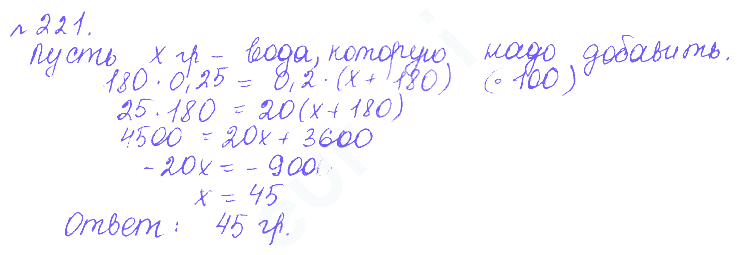 № 221.
Пусть х гр – вода, которую надо добавить.
180 · 0,25 = 0,2 · (х + 180) (· 100)
25 · 180 = 20(х + 180)
4500 = 20х + 3600
-20х = -900
х = 45
Ответ: 45 гр.